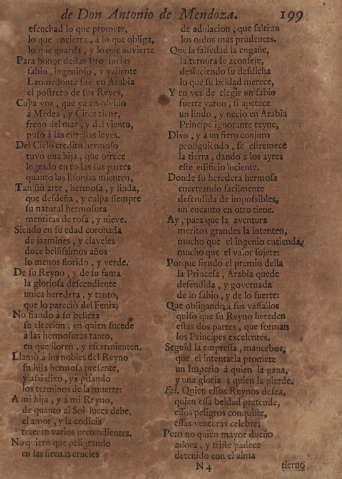 de Don Antonio de Mendoza. 199
escuchad lo que promete,
lo que encierra, a lo que obliga,
lo que guarda, y lo que advierte
Para honor de las
sabio, ingenioso, y valiente
fue en Arabia
el postrero de sus Reyes,
que ya en olvido
a Medea, y Circe tiene,
freno del mar, y del viento,
passò à las estrellas leyes.
Del Cielo credito hermoso
tuvo una hija, que ofrece
logrado en todas sus partes
quanto las lisonjas mienten,
Tan sin arte, hermosa, y
que desdeña, y culpa siempre
su natural hermosura
mentiras de rosa, y nieve.
Siendo en su edad coronada
de jazmines, y claveles
doce bellissimos años
lo menos florido, y verde.
De su Reyno, y de su fama
la gloriosa descendiente
unica heredera, y tanto,
que lo pareciò del Fenix;
No fiando à su belleza
su eleccion, en quien sucede
à las hermosuras tanto,
en quererlo, y
Llamò à los nobles del Reyno
su hija hermosa presente,
y afsadiò, ya pisando
los terminos de la muerte:
A mi hija, y à mi Reyno,
de quanto al Sol luces debe,
el amor, y la codicia
traeràn varios pretendientes.
No quiero que peligrando
en las
de adivacion, que fabràn
los todos mas prudentes.
Que la saña la engañe,
la ternura lo aconseje,
deshaciendo su desdicha
lo que su beldad merece,
Y en vez de elegir un sabio
fuerte varon, si apetece
un lindo, y necio en Arabia
Principe ignorante reyne,
Dixo, y à un fiero conjuro
pronunciado, se estremece
la tierra, dando à los ayres
este edificio luciente.
Donde su heredera hermosa
encerrando facilmente
defendida de impossibles,
un encanto en otro tiene.
Ay, para que la aventura
meritos grandes la intenten,
mucho que el ingenio entienda,
mucho que el valor sujete:
Porque siendo el premio della
la Princesa, Arabia quede
defendida, y governada
de lo sabio, y de lo fuerte:
Que obligando à sus vassallos
quiso que su Reyno hereden
estas dos partes, que forman
los Principes excelentes.
Seguid la empressa, mancebos,
que el intentarla promete
un Imperio à quien la gana,
y una gloria à quien la pierde.
Fel. Quien essos Reynos desea,
quien essa beldad pretende,
essos peligros conquiste,
essas venturas celebre:
Pero no quien mayor dueño
adora, y triste padece
detenido con el alma
N 4 tierno